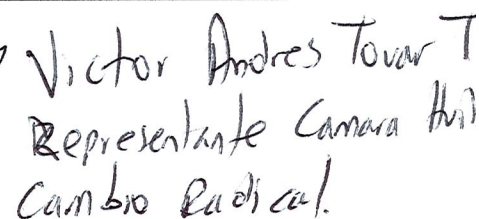 Victor Andres Tovar T
Representante Camara Huil
Cambio Radical.